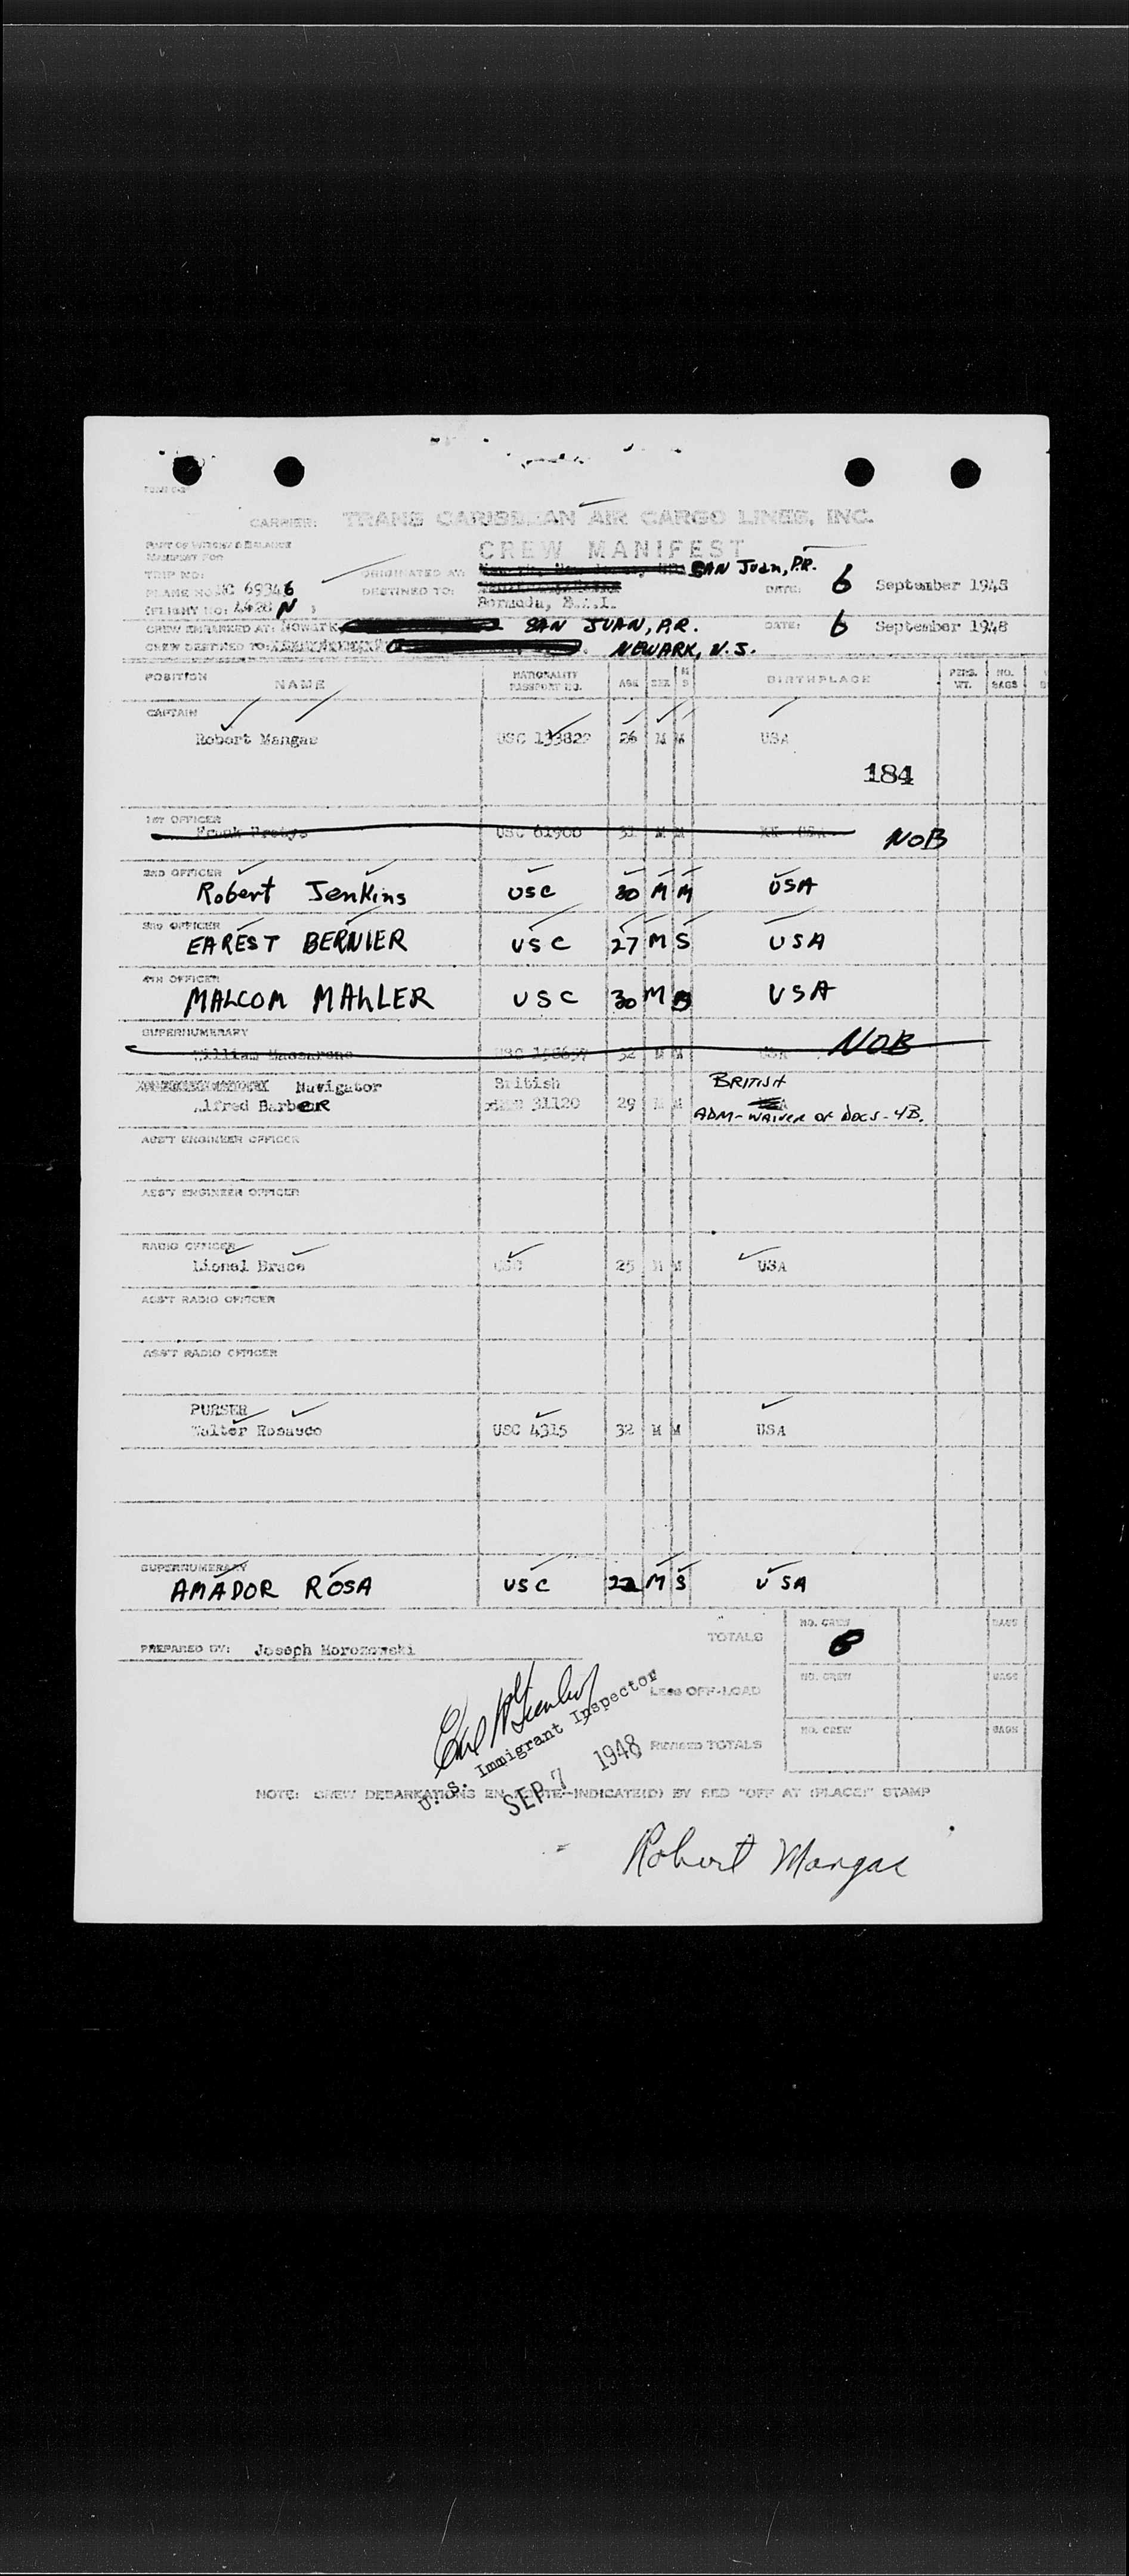 CARRIER: TRANS CARIBBEAN AIR CARGO LINES, INC.
PART OF WEIGHT & BALANCE
MANIFEST FOR
CREW MANIFEST
TRIP NO:
ORIGINATED AT: SAN JUAN, P.R.
PLANE NO: NC 69346
DESTINED TO:
Bermuda, B.W.I.
DATE: 6 September 1948
(FLIGHT NO: 4428 N )
CREW EMBARKED AT: Newark SAN JUAN, P.R. DATE: 6 September 1948
CREW DESTINED TO: NEWARK, N.J.
POSITION NAME NATIONALITY PASSPORT NO. AGE SEX M S BIRTHPLACE PERS. WT. NO. BAGS
CAPTAIN
Robert Mangas USC 133822 26 M M USA
184
1ST OFFICER
Frank USC 61900 31 M M USA NOB
2ND OFFICER
Robert Jenkins USC 30 M M USA
3RD OFFICER
EAREST BERNIER USC 27 M S USA
4TH OFFICER
MALCOM MAHLER USC 30 M USA
SUPERNUMERARY
William USC 32 M M USA NOB
Navigator British BRITISH
Alfred BarbeER 31120 29 M M
ADM-WAIVER OF DOCS-4B.
ASS'T ENGINEER OFFICER
ASS'T ENGINEER OFFICER
RADIO OFFICER
Lionel Brace USC 25 M M USA
ASS'T RADIO OFFICER
ASS'T RADIO OFFICER
PURSER
Walter Rosasco USC 4315 32 M M USA
SUPERNUMERARY
AMADOR ROSA USC 22 M S USA
TOTALS NO. CREW 8 BAGS
PREPARED BY: Joseph Morozowski
Less OFF-LOAD NO. CREW BAGS
U. S. Immigrant Inspector
SEP 7 1948
REVISED TOTALS NO. CREW BAGS
NOTE: CREW DEBARKATIONS EN ROUTE INDICATE(D) BY RED "OFF AT (PLACE)" STAMP
Robert Mangas